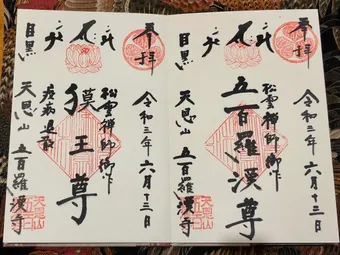 奉拝
令和三年六月十三日
松雲禅師御作
五百羅漢尊
目黒
天恩山 五百羅漢寺
奉拝
令和三年六月十三日
松雲禅師御作
獏王尊
疫病退散
目黒
天恩山 五百羅漢寺